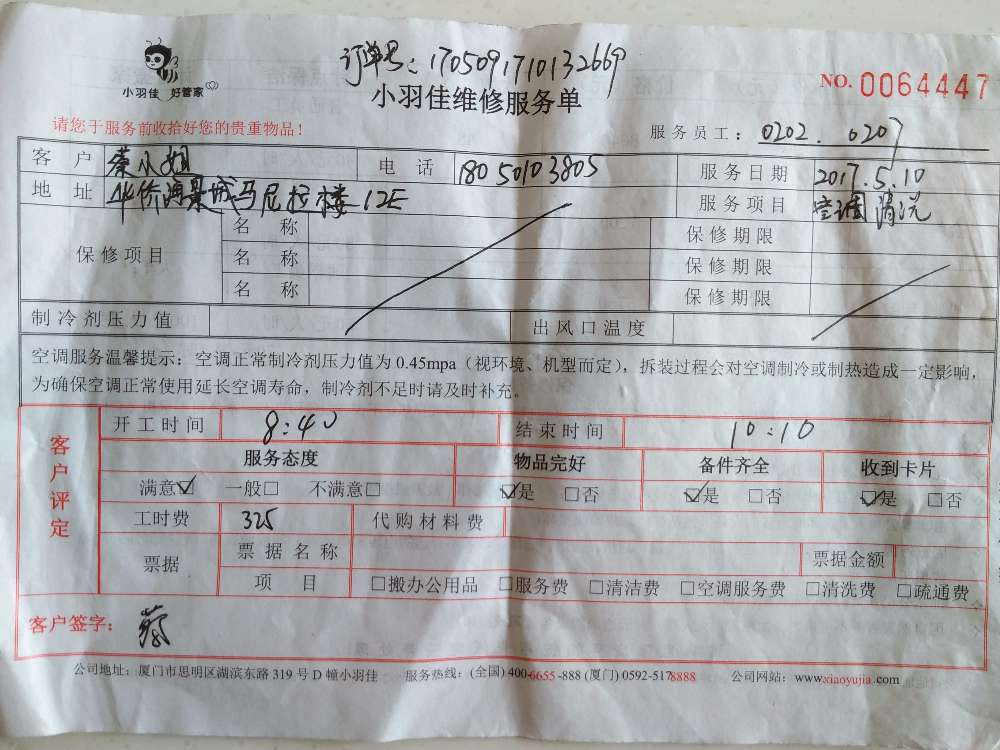 订单号：1705091710132669
小羽佳 好管家
小羽佳维修服务单
NO. 0064447
请您于服务前收拾好您的贵重物品！
服务员工：0202.0207
客户 蔡小姐 电话 18050103805 服务日期 2017.5.10
地址 华侨海景城马尼拉楼12E 服务项目 空调清洗
保修项目
名称 保修期限
名称 保修期限
名称 保修期限
制冷剂压力值 出风口温度
空调服务温馨提示：空调正常制冷剂压力值为0.45mpa（视环境、机型而定），拆装过程会对空调制冷或制热造成一定影响，
为确保空调正常使用延长空调寿命，制冷剂不足时请及时补充。
客户评定
开工时间 8:40 结束时间 10:10
服务态度 物品完好 备件齐全 收到卡片
满意☑ 一般□ 不满意□ ☑是 □否 ☑是 □否 ☑是 □否
工时费 325 代购材料费
票据 票据名称 票据金额
项目 □搬办公用品 □服务费 □清洁费 □空调服务费 □清洗费 □疏通费
客户签字：蔡
公司地址：厦门市思明区湖滨东路319号D幢小羽佳 服务热线：(全国)400-6655-888 (厦门)0592-5178888 公司网站：www.xiaoyujia.com